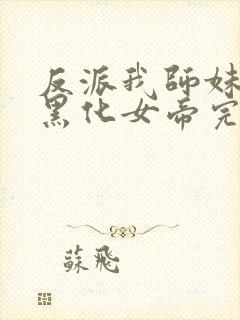 反派我師妹
黑化女帝完
蘇飛